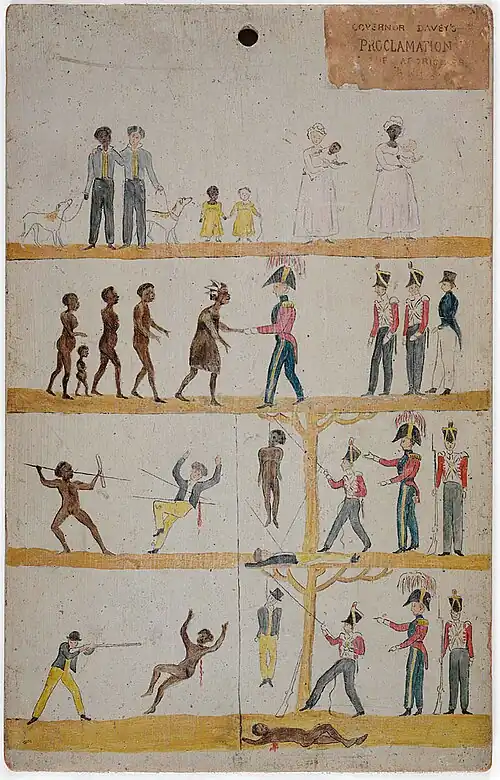 GOVERNOR DAVEY'S
PROCLAMATION
ABORIGINES